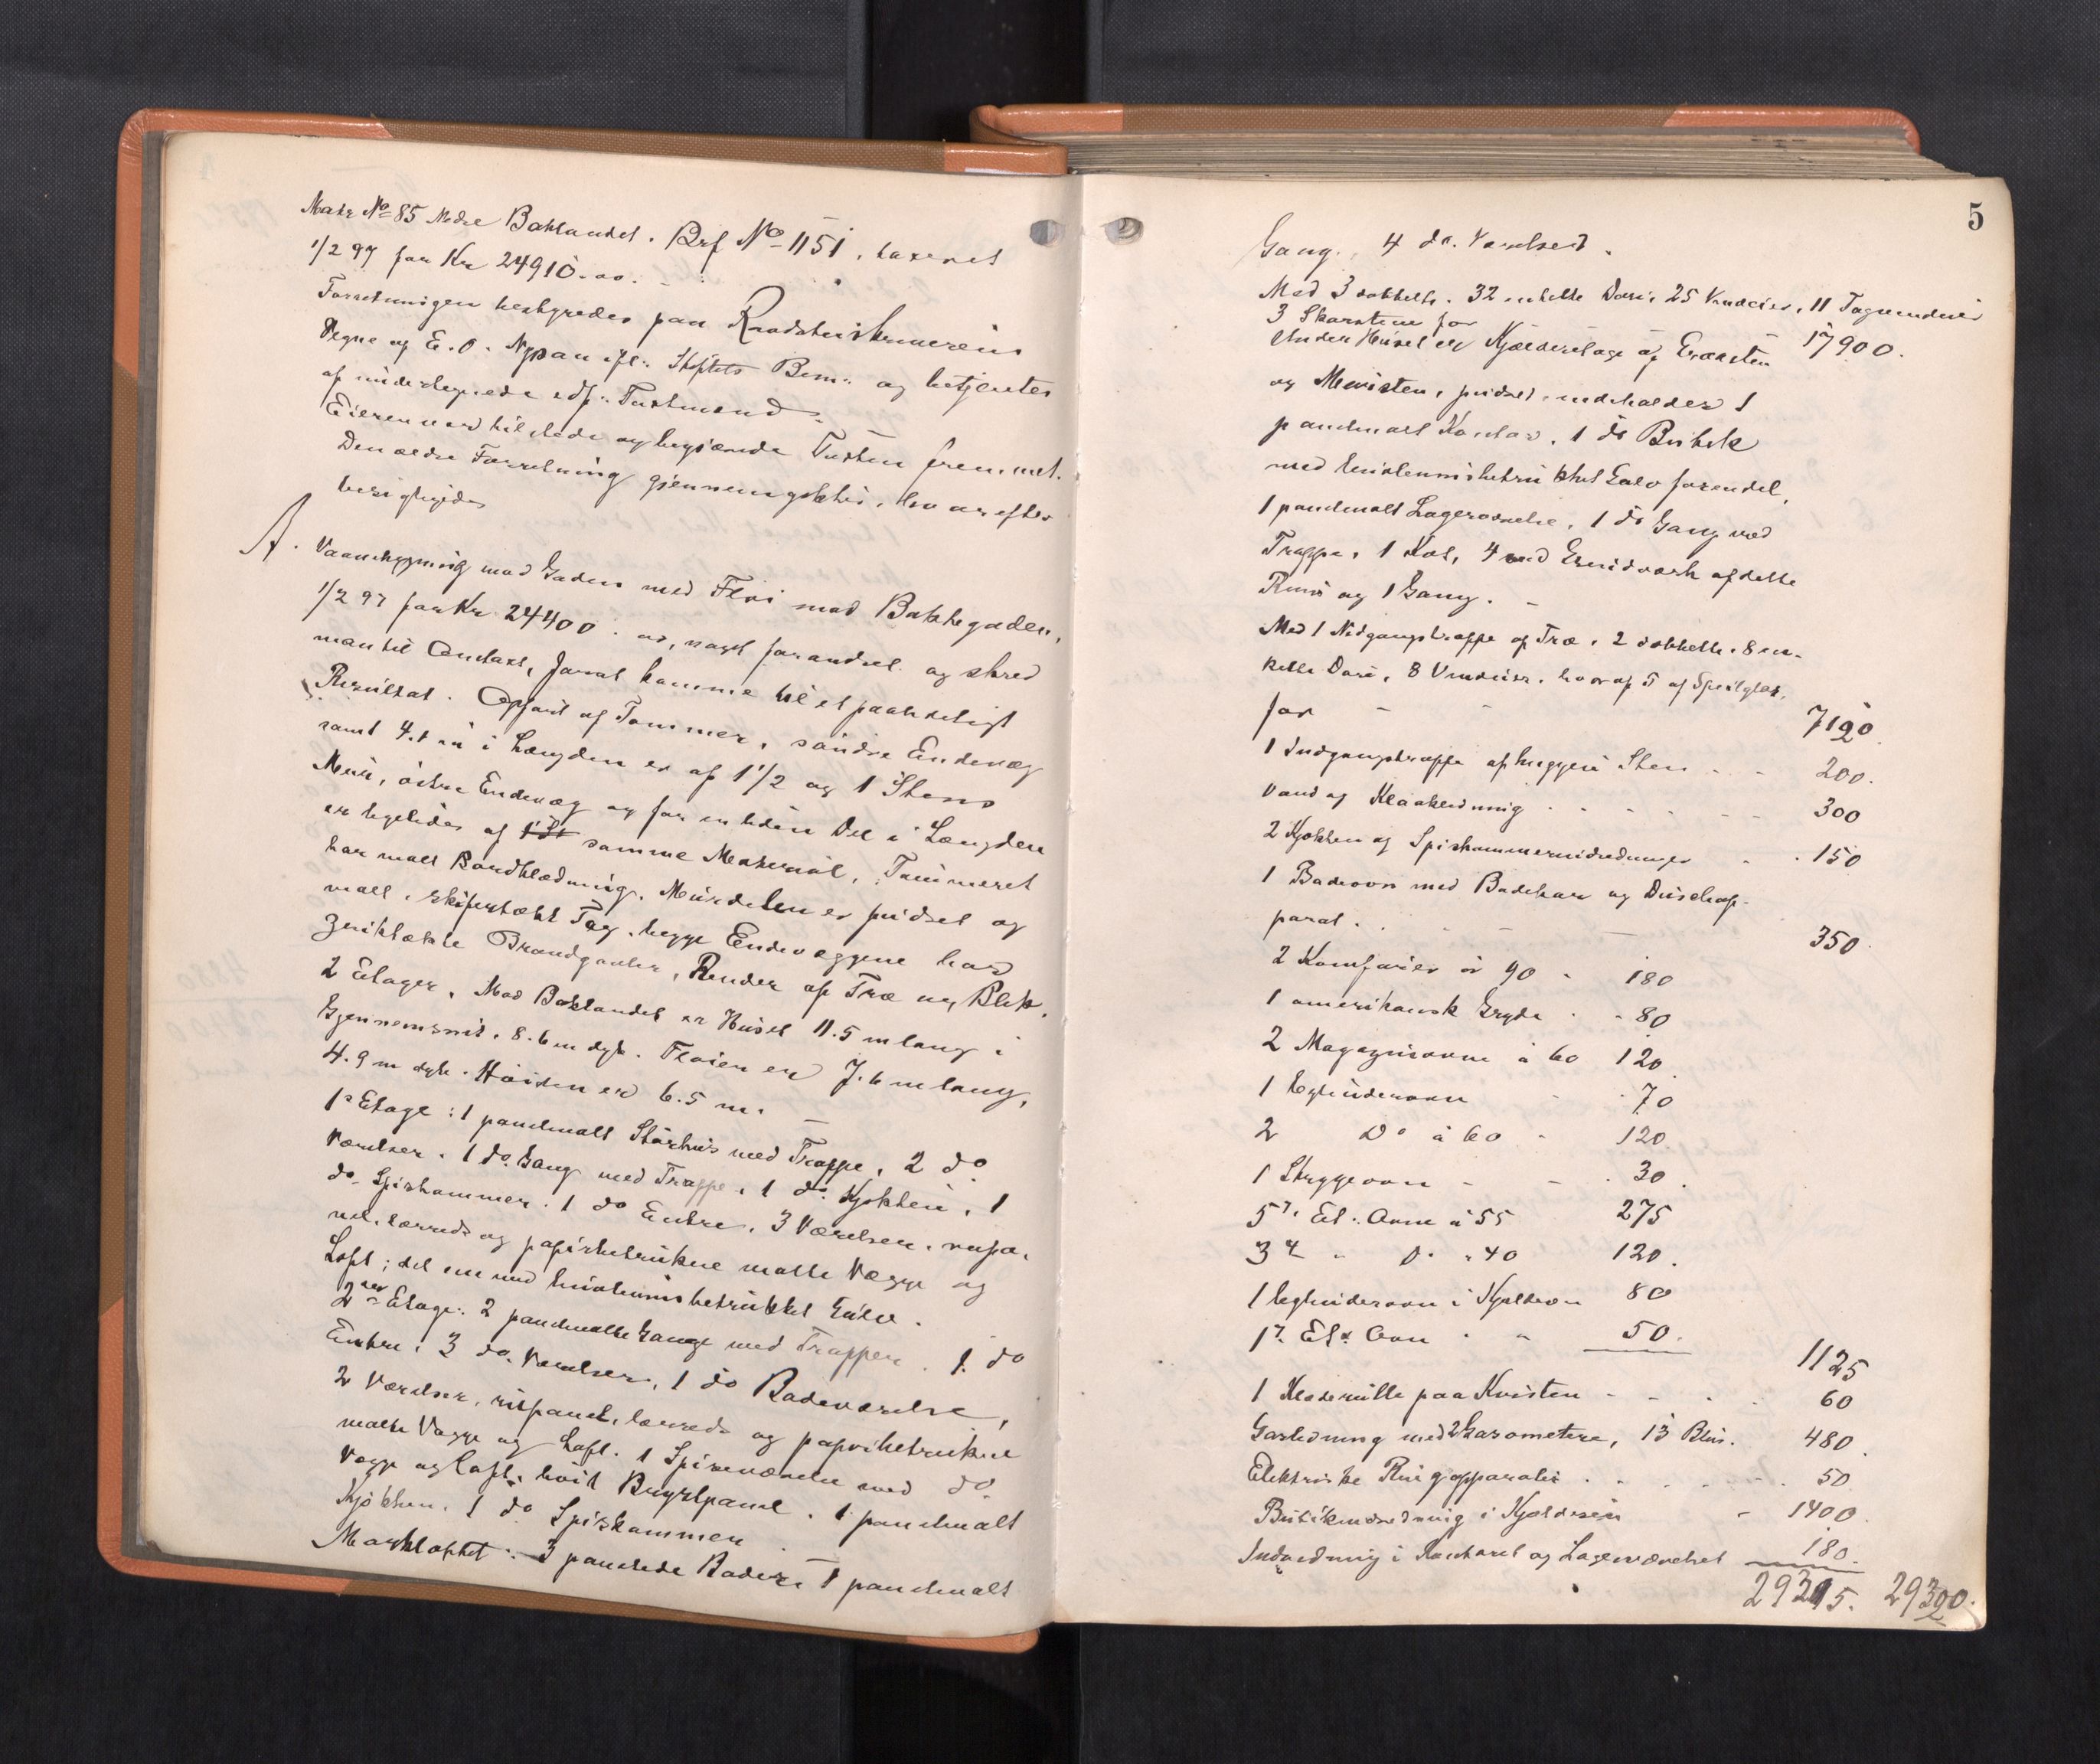 Matr No 85 Nedre Baklandet. Brf No 1151, taxeret
1/2 97 for Kr 24910.00.
Forretningen bestyredes paa Raadstuskriverens
Vegne af E. O. Nypan efr: Skiftets Bem: og betjentes
af undertegnede edf: Taxtmænd.
Eieren var tilstede og begjærede Taxten fremmet.
Den ældre Forretning gjennemgikkes, hvorefter
besigtigedes
A. Vaaningsbygning mod Gaden med Fløi mod Bakkegaden,
1/2 97 for Kr. 24400.00, noget forandret og skred
man til Omtaxt, forat komme til et paalideligt
Resultat. Opført af Tømmer, søndre Endevæg
samt 4.4 m i Længden er af 1 1/2 og 1 Stens
Mur, østre Endevæg og for en liden Del i Længden
er ligeledes af samme Material, Tømmeret
har malt Bordklædning. Murdelen er pudset og
malt, skifertækt Tag, begge Endevæggene har
zinktækte Brandgavler, Render af Træ og Blik.
2 Etager. Mod Baklandet er Huset 11.5 m lang i
Gjennemsnit, 8.6 m dyb. Fløien er 7.6 m lang,
4.9 m dyb. Høiden er 6.5 m. -
1ste Etage: 1 panelmalt Storhus med Trappe, 2 do
Værelser. 1 do. Gang med Trappe, 1 do. Kjøkken, 1
do. Spiskammer. 1 do Entre, 3 Værelser, rupa-
nel, lærreds og papirbetrukne malte Vægge og
Loft; det ene med linoleumsbetrukket Gulv.
2den Etage: 2 panelmalte Gange med Trapper. 1. do
Entre, 3 do. Værelser, 1 do Badeværelse,
2 Værelser, rupanel, lærreds og papirbetrukne
malte Vægge og Loft. 1 Spiseværelse med do
Vægge og Loft, høit Brystpanel. 1 panelmalt
Kjøkken. 1 do Spiskammer.
Mørkloftet: 3 panelede Boder. 1 panelmalt
5
Gang, 4 do. Værelser.
Med 3 dobbelte. 32 enkelte Døre, 25 Vinduer, 11 Tagvinduer
3 Skorstene for 17900.
Under Huset er Kjælderetage af Graasten
og Mursten, pudset, indeholder 1
panelmalt Kontor, 1 do Butik
med linoleumsbetrukket Gulv for en del,
1 panelmalt Lagerværelse, 1 do Gang med
Trappe, 1 Klos, 4 med Grindværk afdelte
Rum og 1 Gang. -
Med 1 Nedgangstrappe af Træ, 2 dobbelte, 8 en-
kelte Døre, 8 Vinduer, hvoraf 5 af Speilglas,
for - - 7120
1 Indgangstrappe af huggen Sten - - 200.
Vand og Kloakledning - - - 300
2 Kjøkken og Spiskammerindredninger - 150
1 Badeovn med Badekar og Duschap-
parat. - - 350.
2 Komfurer à 90 - 180
1 amerikansk Gryde - 80
2 Magazinovne à 60 120
1 Cylinderovn - 70
2 Do à 60 - 120.
1 Strygeovn - - 30.
5 3. Et: Ovne à 55 275
3 2 " D. " 40 120.
1 Cylinderovn i Kjælderen 80
1 3. Et: Ovn " " 50.
1125
1 Klæderulle paa Kvisten - - 60
Gasledning med 2 Gasometere, 13 Blus. 480.
Elektriske Ringapparater - - 50
Butikindredning i Kjælderen - 1400.
Indredning i Kontoret og Lagerværelset 180.
29315. 29300.